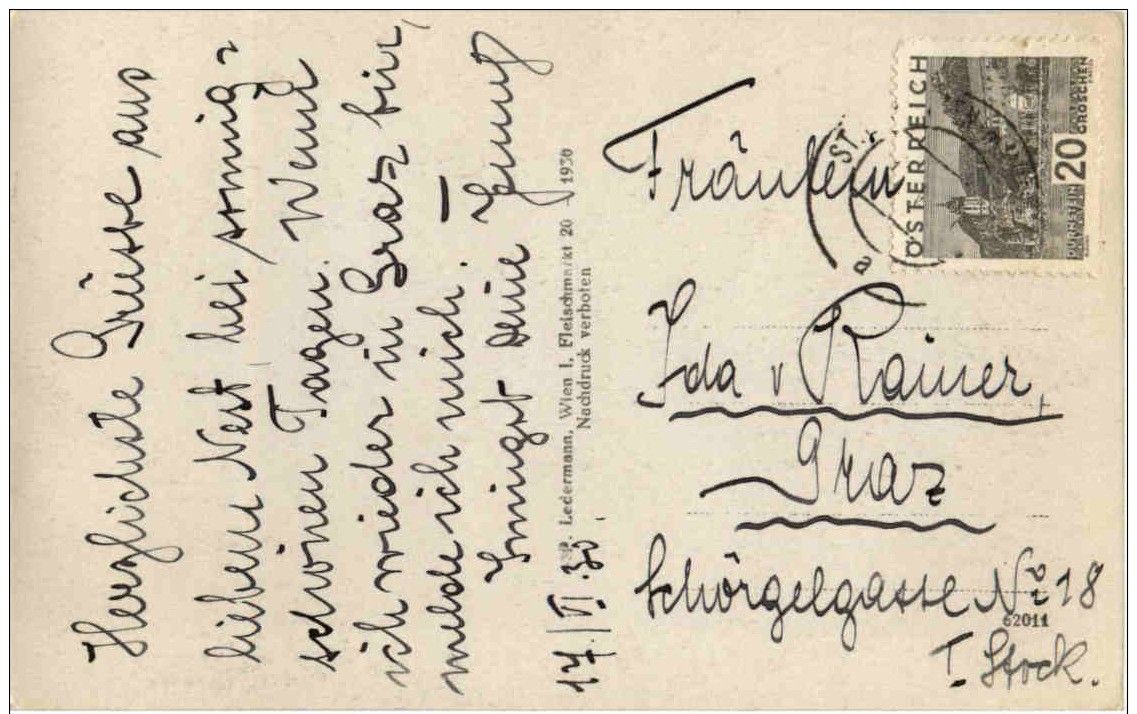 Herzlichste Grüsse aus
lieben Nest bei sonnig-
schönen Tagen. Wenn
ich wieder in Graz bin,
melde ich mich. —
Innigst Deine
17./VI.30.
Ledermann, Wien I, Fleischmarkt 20 1930
Nachdruck verboten
ÖSTERREICH
DÜRNSTEIN
20
GROSCHEN
ST.
a
Fräulein
Ida v Rainer,
Graz
Schörgelgasse No 18
62011
I. Stock.